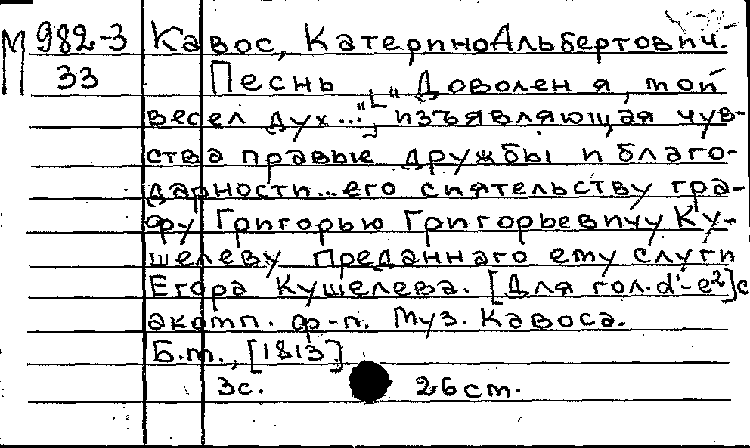 М 982-3 Кавос, Катерино Альбертович.
33 Песнь ["Доволен я, мой
весел дух..."], изъявляющая чув-
ства правые дружбы и благо-
дарности... его сиятельству гра-
фу Григорью Григорьевичу Ку-
шелеву преданнаго ему слуги
Егора Кушелева. [Для гол. d¹-e²] с
акомп. ф-п. Муз. Кавоса.
Б.м., [1813]
3с. 26 см.